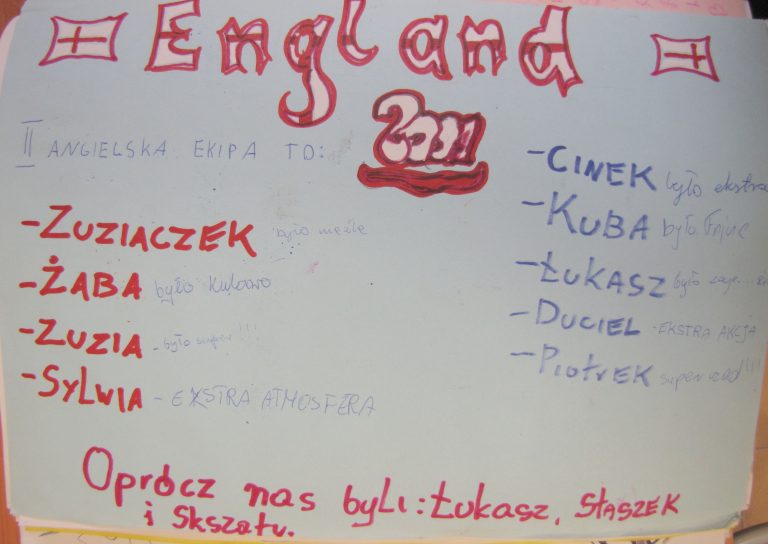 England
2001
II ANGIELSKA EKIPA TO:
- ZUZIACZEK było nieźle
- ŻABA było kulowo
- ZUZIA - było super!!!
- SYLWIA - EKSTRA ATMOSFERA
- CINEK było ekstra
- KUBA było fajnie
- ŁUKASZ było
- DUCIEL - EKSTRA AKCJA
- PiotrEK super
Oprócz nas byli: Łukasz, STASZEK
i Skszatu.